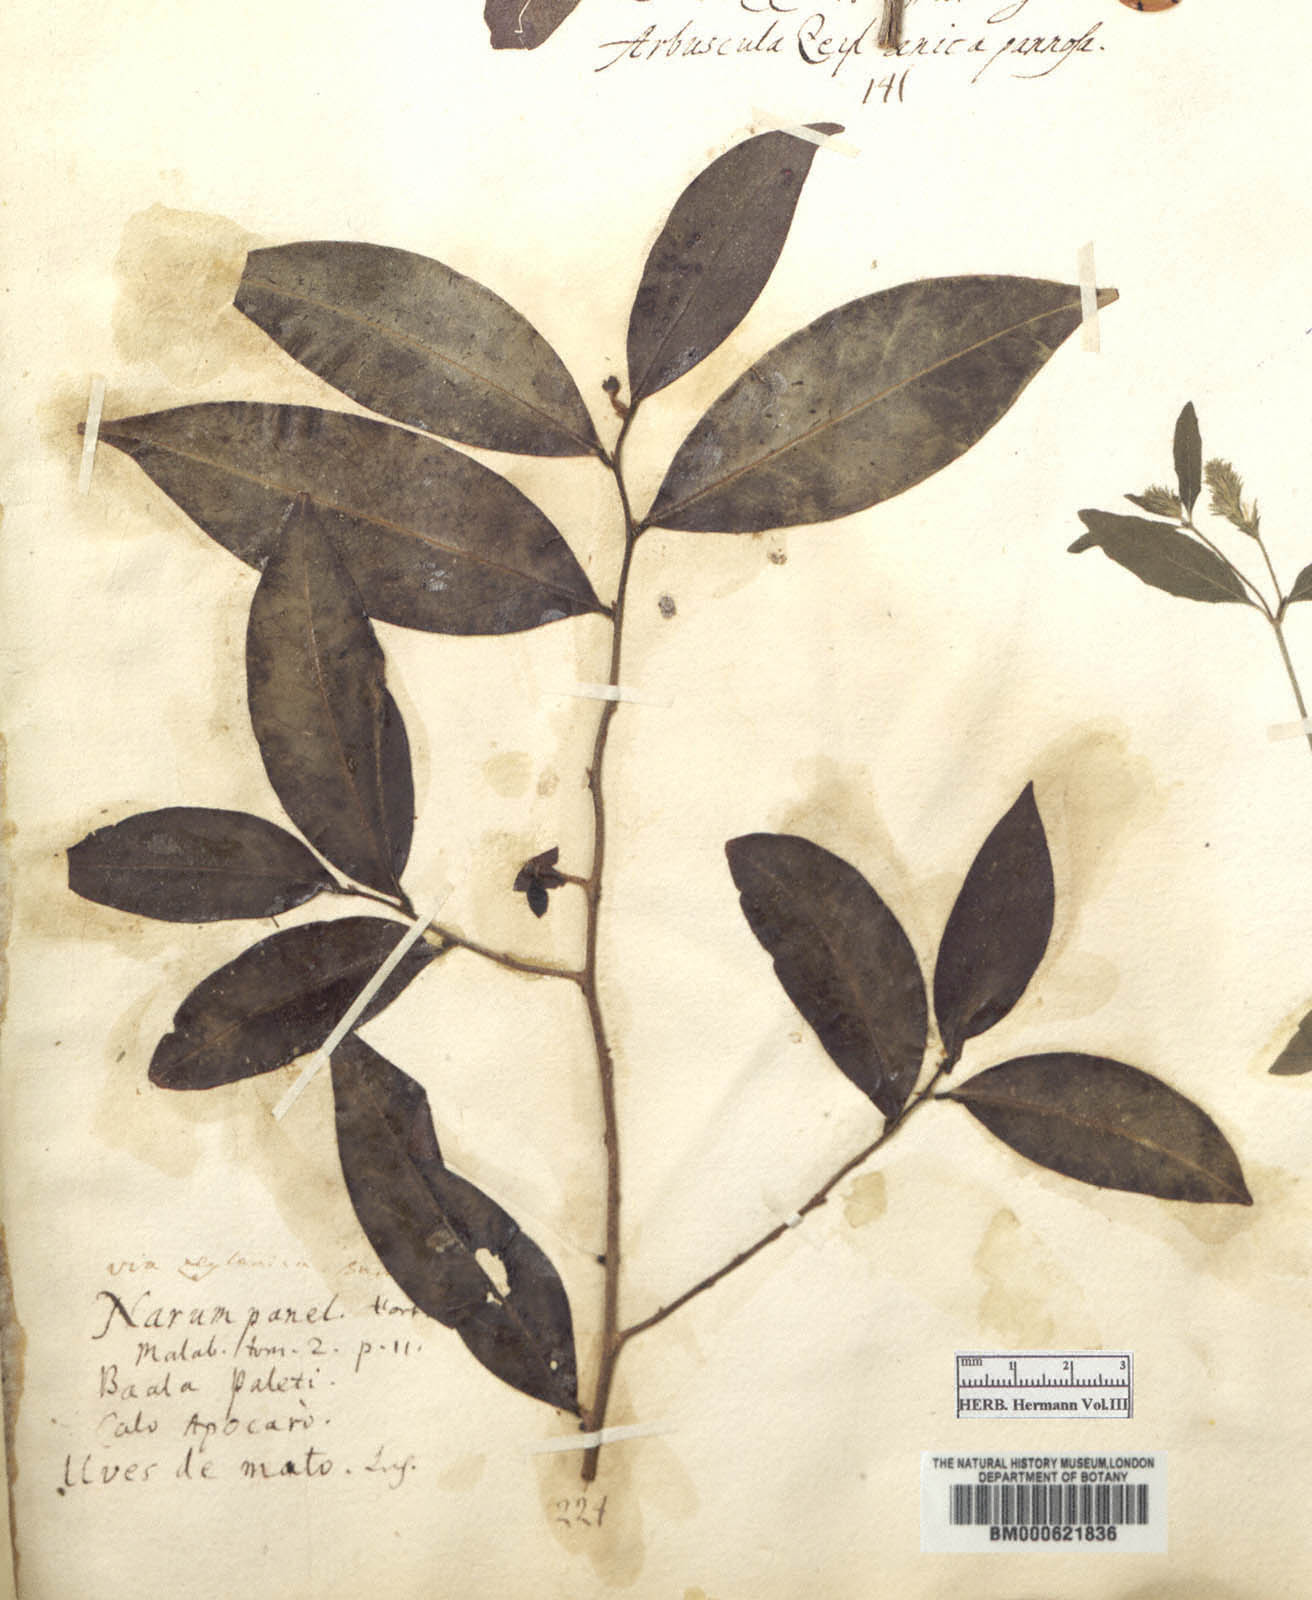 Arbuscula Zeylanica pannosa.
141
via zeylanica.
Narum panel. Hort
Malab. tom. 2. p. 11.
Baala Paleti.
Calo Apocarò.
Uves de mato. Lus.
221
mm 1 2 3
HERB. Hermann Vol.III
THE NATURAL HISTORY MUSEUM,LONDON
DEPARTMENT OF BOTANY
BM000621836